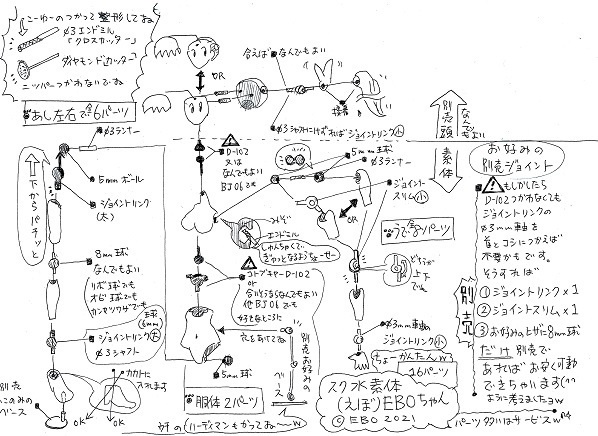 こーゆーのつかって整形してね
φ3エンドミル
「クロスカッター」
ダイヤモンドカッター
ニッパーつかわないでね
あし左右で全6パーツ
φ3ランナー
下からパチッと
5mmボール
ジョイントリング
(大)
8mm球
なんでもよい
リボ球でも
オビ球でも
カンヤツザでも
球
(6mm)
ジョイントリング(大)
φ3シャフト
カカトに
入れます
別売
ベース
OK
OK
合えばなんでもよい
OR
接着
φ3シャフトにすればジョイントリンク(小)
D-102
又は
なんでもよい
BJ06でも
5mm球
φ3ランナー
ジョイント
スリム(小)
みぞ
エンドミル
OR
うで全パーツ
コトブキヤD-102
or
合いそうならなんでもよい
他BJ06でも
好きなところに
どっちが
上下
でも
穴をあけてね
φ3mm軸の
ジョイントリンク(小)
5mm球
別売お好みの
ベース
服体2パーツ
ちょーかんたんw
26パーツ
スク水素体
(えぼ)EBOちゃん
©EBO 2021
別売頭
なんでもよい
素体
お好みの
別売ジョイント
もしかしたら
D-102つかわなくても
ジョイントリンクの
φ3mm軸を
首とコシにつかえば
不要かもです。
そうすれば
①ジョイントリンク×1
②ジョイントスリム×1
③お好みの上がり8mm球
だけ別売で
あればお安く可動
できちゃいます(^^
ように考えましたヨw
別売
パーツ多いはサービスw